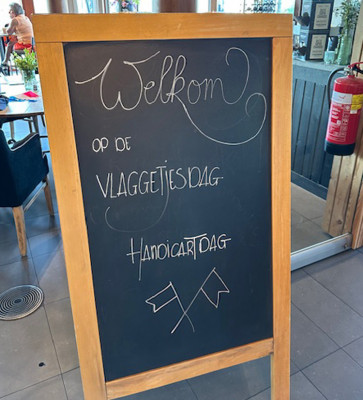 Welkom
OP DE
VLAGGETJESDAG
HANDICARTDAG